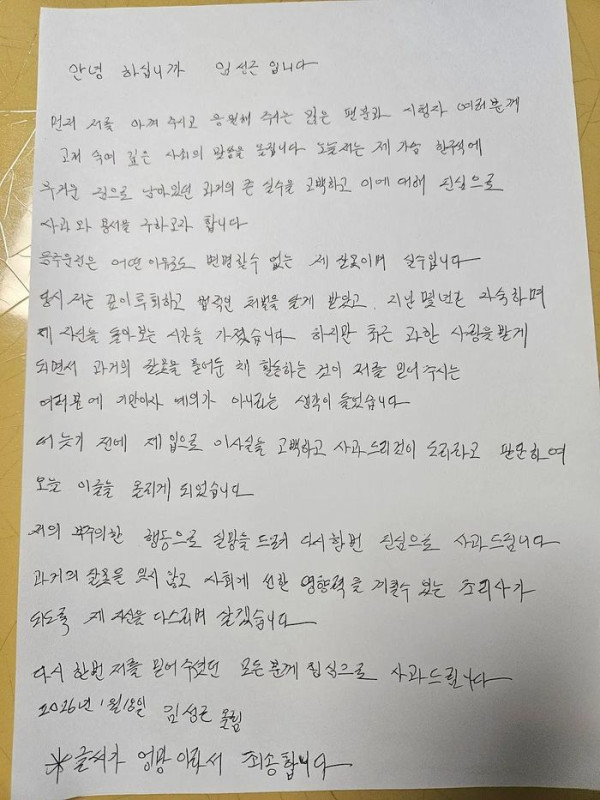 안녕 하십니까 임성근 입니다
먼저 저를 아껴 주시고 응원해 주시는 많은 팬분과 시청자 여러분께
고개 숙여 깊은 사죄의 말씀을 올립니다 오늘 저는 제 가슴 한구석에
무거운 짐으로 남아있던 과거의 큰 실수를 고백하고 이에 대해 진심으로
사과와 용서를 구하고자 합니다
음주운전은 어떤이유로도 변명할수 없는 제 잘못이며 실수입니다
당시 저는 깊이후회하고 법적인 처벌을 달게 받았고. 지난 몇년간 자숙하며
제 자신을 돌아보는 시간을 가졌습니다 하지만 최근 과한 사랑을 받게
되면서 과거의 잘못을 묻어둔 채 활동하는 것이 저를 믿어주시는
여러분에 기만이자 예의가 아니라는 생각이 들었습니다
더 늦기 전에 제 입으로 이사실을 고백하고 사과드리것이 도리라고 판단하여
오늘 이글을 올리게 되었습니다
저의 부주의한 행동으로 실망을 드려 다시한번 진심으로 사과드립니다
과거의 잘못을 잊지 않고 사회에 선한 영향력을 끼칠수 있는 조리사가
되도록 제 자신을 다스리며 살겠습니다
다시 한번 저를 믿어주셨던 모든분께 진심으로 사과드립니다
2026년 1월18일 임성근 올림
※글씨가 엉망이라서 죄송합니다